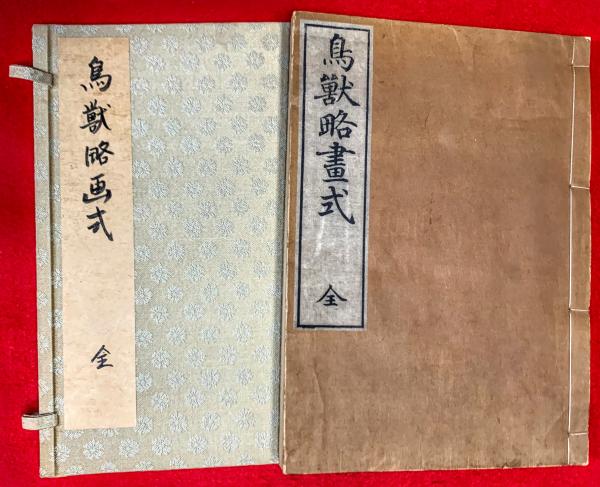 鳥獣略畫式
全
鳥獣略画式
全